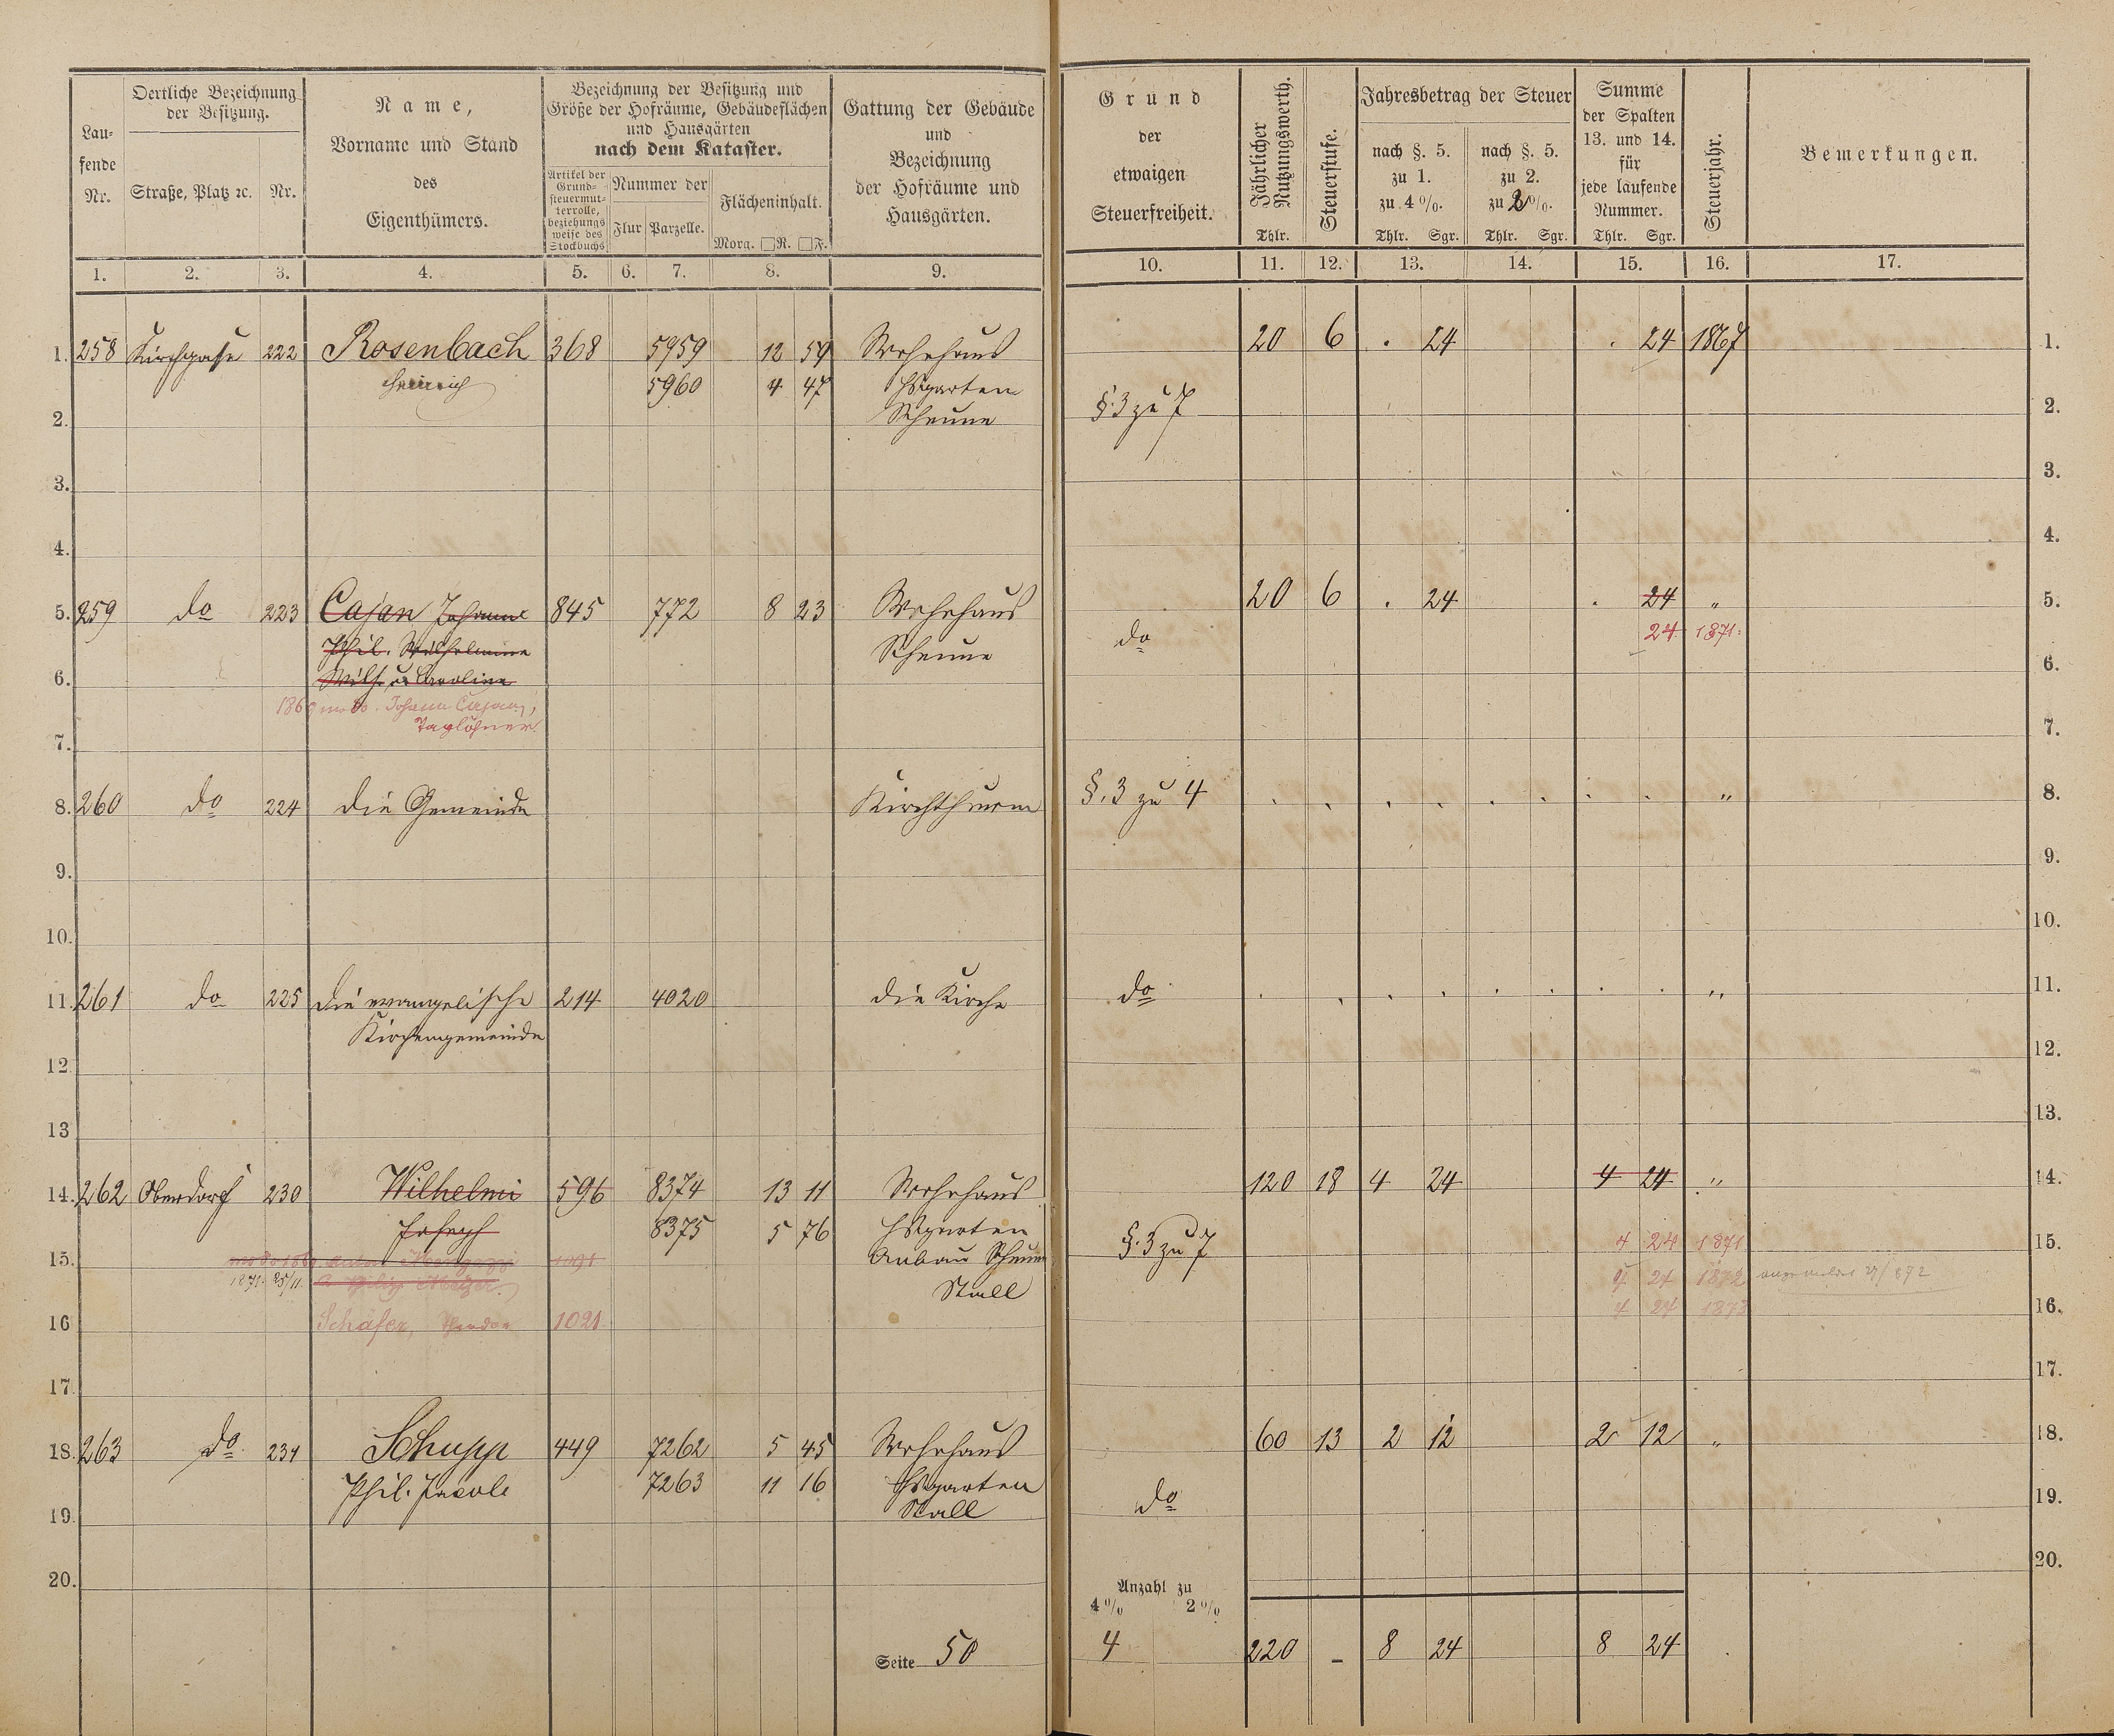 Laufende Nr.
Oertliche Bezeichnung der Besitzung.
Straße, Platz ꝛc. Nr.
Name,
Vorname und Stand
des
Eigenthümers.
Bezeichnung der Besitzung und
Größe der Hofräume, Gebäudeflächen
und Hausgärten
nach dem Kataster.
Artikel der Grund-
steuermut-
terrolle,
beziehungs
weise des
Stockbuchs
Nummer der
Flur Parzelle.
Flächeninhalt.
Morg. □R. □F.
Gattung der Gebäude
und
Bezeichnung
der Hofräume und
Hausgärten.
Grund
der
etwaigen
Steuerfreiheit.
Jährlicher Nutzungswerth.
Thlr.
Steuerstufe.
Jahresbetrag der Steuer
nach §. 5. zu 1. zu 4 %.
Thlr. Sgr.
nach §. 5. zu 2. zu 2 %.
Thlr. Sgr.
Summe
der Spalten
13. und 14.
für
jede laufende
Nummer.
Thlr. Sgr.
Steuerjahr.
Bemerkungen.
1. 2. 3. 4. 5. 6. 7. 8. 9. 10. 11. 12. 13. 14. 15. 16. 17.
1. 258 Kirchgasse 222 Rosenbach 368 5959 12 59 Wohnhaus 20 6 . 24 . 24 1867 1.
Heinrich 5960 4 47 Hsgarten
2. Scheune §. 3 zu 7 2.
3. 3.
4. 4.
5. 259 do 223 Cajan Johann 845 772 8 23 Wohnhaus 20 6 . 24 . 24 " 5.
Phil. Wilhelmine Scheune do 24 1871.
6. Wilh. u. Caroline 6.
1869 modo. Johann Cajan,
Taglöhner
7. 7.
8. 260 do 224 die Gemeinde Kirchthurm §. 3 zu 4 . . . . . . . . " 8.
9. 9.
10. 10.
11. 261 do 225 die evangelische 214 4020 die Kirche do . . . . . . . . " 11.
Kirchengemeinde
12. 12.
13 13.
14. 262 Oberdorf 230 Wilhelmi 596 8374 13 11 Wohnhaus 120 18 4 24 4 24 " 14.
Joseph 8375 5 76 Hsgarten §. 3 zu 7
15. Anbau Scheune 4 24 1871 15.
1871. 25/11. Stall 4 24 1872
16 Schäfer, Theodor 1021 4 24 1873 16.
17. 17.
18. 263 do 231 Schupp 449 7262 5 45 Wohnhaus 60 13 2 12 2 12 " 18.
Phil. Jacob 7263 11 16 Hsgarten
19. Stall do 19.
20. 20.
Anzahl zu
4 % 2 %
Seite 50 4 220 – 8 24 8 24